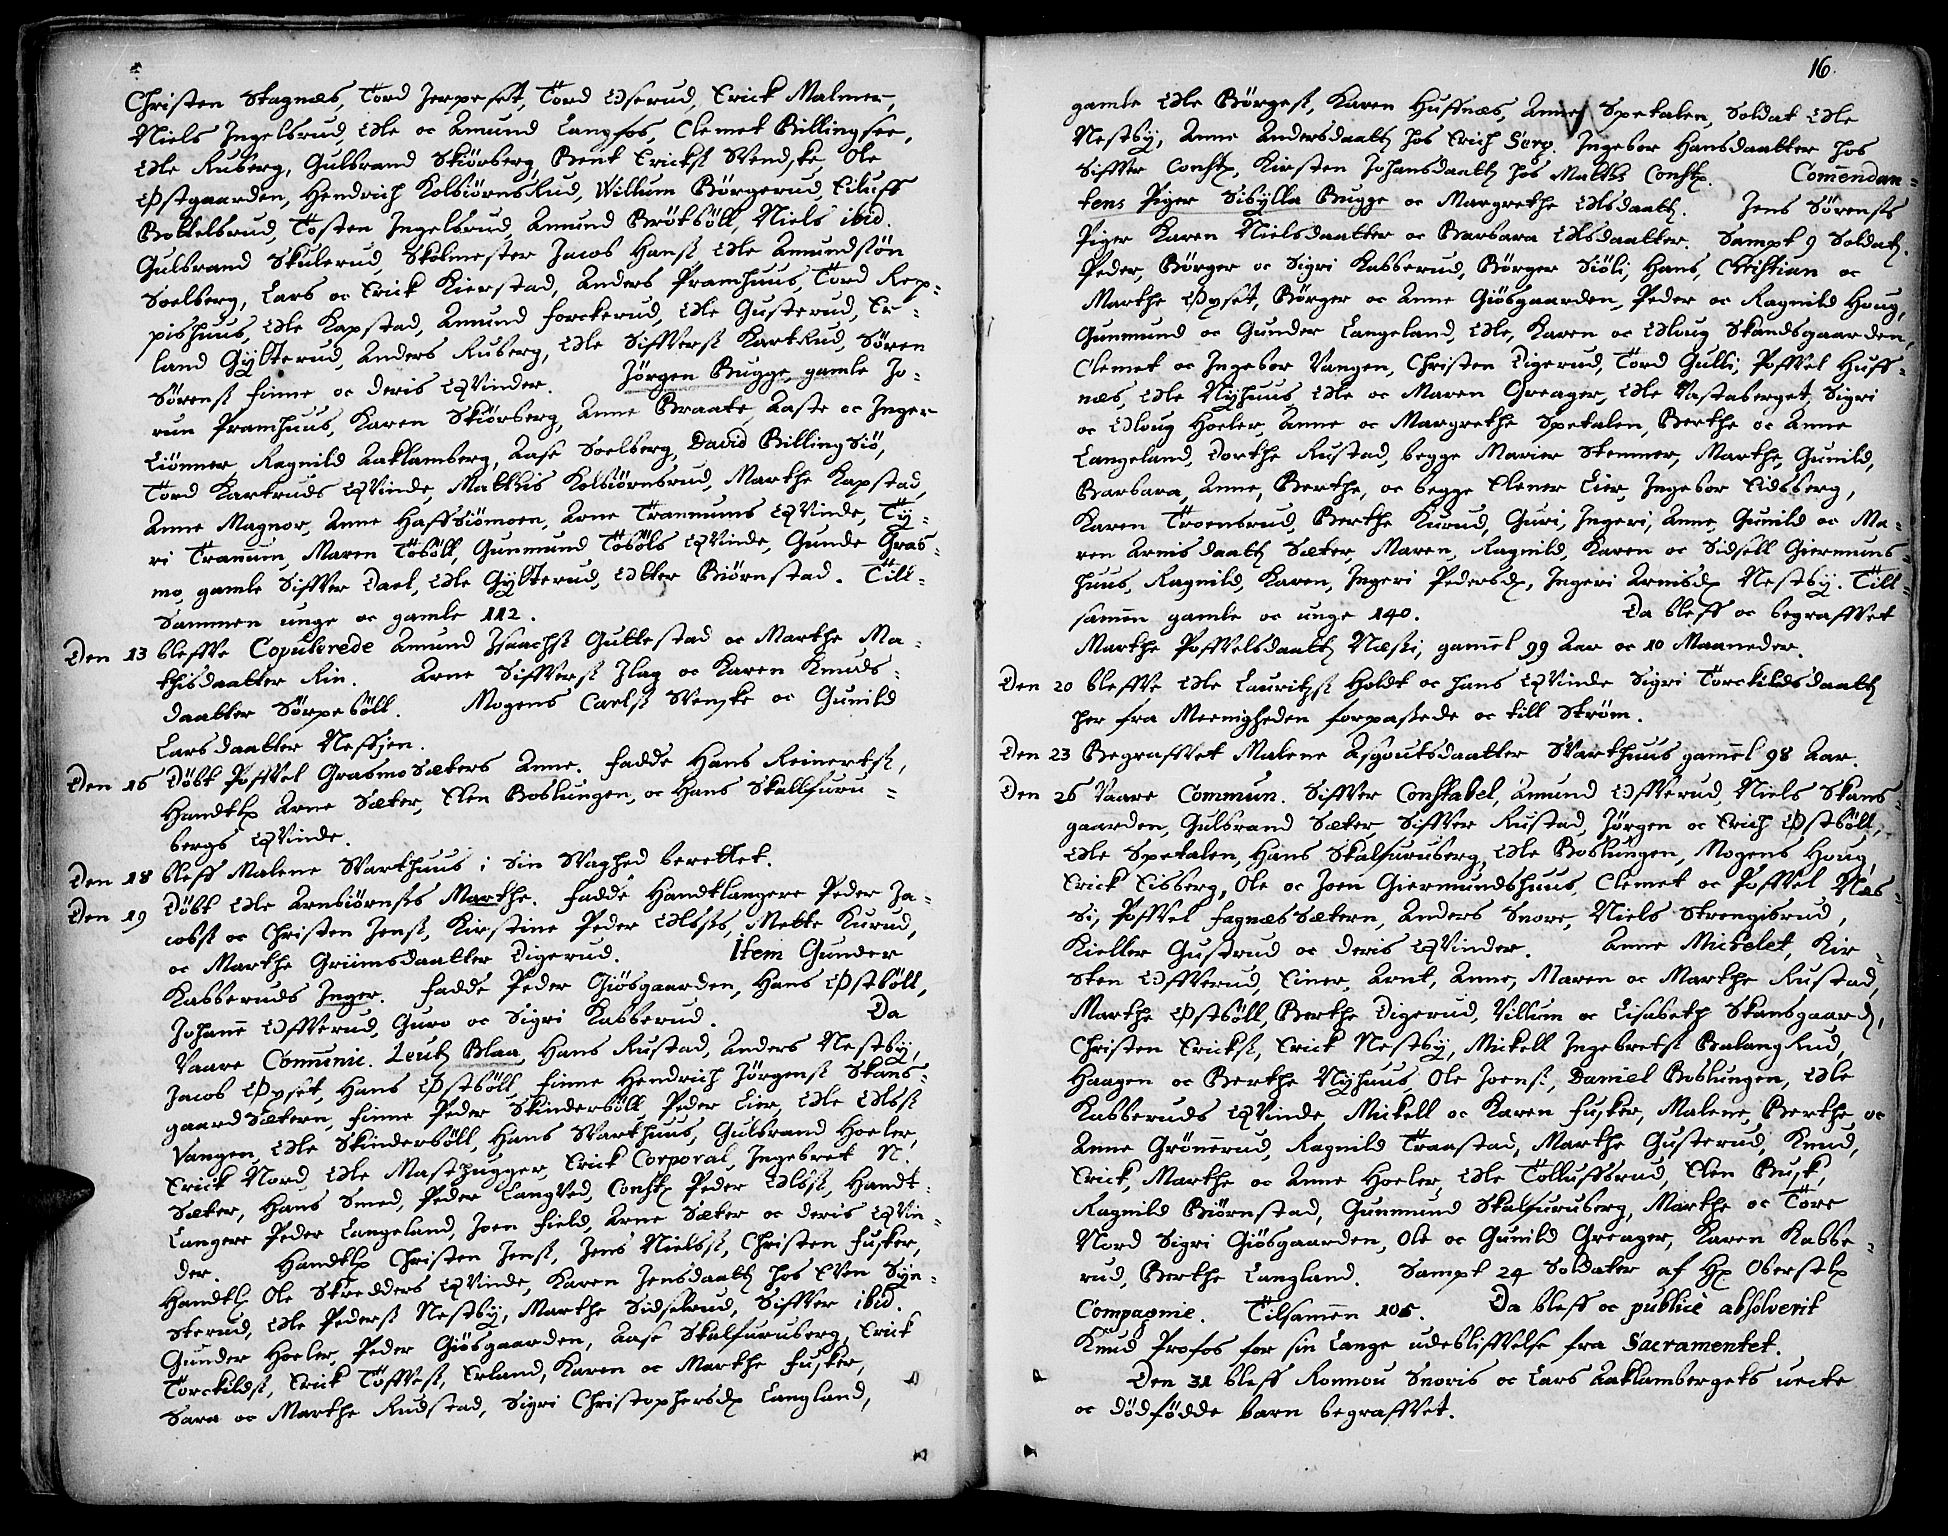 Christen Skagnæs, Tord Jerpeset, Tord Oserud, Erick Malmer,
Niels Ingelsrud, Ole oc Amund Langfos, Clemet Billingsee,
Ole Ruberg, Gulbrand Skiørberg, Bent Ericks: Svendske, Ole
Østgaarden, Hendrich Kolbiørnsrud, Willum Børgerud, Eiluff
Bottelsrud, Tosten Ingelsrud, Amund Brøtsøll, Niels ibid.
Gulbrand Skulerud, Skolmester Jacob Hans:, Ole Amundsøn
Soelberg, Lars oc Erick Kierstad, Anders Pramhuus, Tord Rep-
pishuus, Ole Kapstad, Amund Forckerud, Ole Gusterud, Er-
land Gylterud, Anders Ruberg, Ole Siffvers: Kartrud, Søren
Sørens: Finne oc deris Qvinder. Jørgen Bugge, gamle Jo-
run Pramhuus, Karen Skiørberg, Anne Braate, Aaste oc Inger
Liønner, Ragnild Aaklamberg, Aase Soelberg, David Billingsiø,
Tord Kartruds Qvinde, Matthis Kolbiørnsrud, Marthe Kapstad,
Anne Magnor, Anne Haffsiømoen, Arne Trannums Qvinde, Ty-
ri Tranum, Maren Tøsøll, Gunmund Tøsøls Qvinde, Gunde Gras-
mo, gamle Siffver Dael, Ole Gylterud, Otter Biørnstad. Till-
sammen unge oc gamle 112.
Den 13 bleffve Copulerede Amund Isaachs: Guttestad oc Marthe Ma-
thisdaatter Rin. Arne Siffvers: Ilag oc Karen Knuds-
daatter Sørpebøll. Mogens Carels: Svenske oc Gunild
Larsdaatter Neffsien.
Den 16 Døbt Poffvel Grasmo Sæters Anne. Fadde Hans Reinerts:,
Handtl: Arne Sæter, Elen Boslungen, oc Hans Skallfuru-
bergs Qvinde.
Den 18 bleff Malene Varthuus i sin Svaghed berettet.
Den 19 Døbt Ole Arnbiørns:s Marthe. Fadde Handtlangere Peder Ja-
cobs: oc Christen Jens:, Kirstine Peder Ols:s, Mette Kurud,
oc Marthe Grumsdaatter Digerud. Item Gunder
Kabberuds Inger. Fadde Peder Giøsgaarden, Hans Østbøll,
Johanne Offverud, Guro oc Sigri Kabberud. Da
Vaare Comunic. Leut: Blaa, Hans Rustad, Anders Nestby,
Jacob Øyset, Hans Østbøll, Finne Hendrich Jørgens: Skans-
gaard Sætern, Finne Peder Skinderbøll, Peder Eier, Ole Ols:
Vangen, Ole Skinderbøll, Hans Varthuus, Gulbrand Hoeler,
Erick Nord, Ole Masthugger, Erick Corporal, Ingebret N.
Sæter, Hans Smed, Peder Langved, Const: Peder Ols:, Handt-
langere Peder Langeland, Joen Field, Arne Sæter oc deris Qvin-
der. Handtl: Christen Jens:, Jens Niels:, Christen Fusker,
Handtl: Ole Skredders Qvinde, Karen Jensdaatt: hos Even Syn-
sterud, Ole Peders: Nestby, Marthe Sidselrud, Siffver ibid.
Gunder Hoeler, Peder Giøsgaarden, Aase Skalfuruberg, Erick
Torckilds:, Erick Toffves:, Erland, Karen oc Marthe Fusker,
Sara oc Marthe Rudstad, Sigri Christophersd: Langland,
16.
gamle Ole Børges:, Karen Huffnæs, Anne Spetalen, Soldat Ole
Nestby, Anne Andersdaatt: hos Erich Serg. Ingebor Hansdaatter hos
Siffver Const:, Kirsten Johansdaatt: hos Mattis Const:. Comendan-
tens Piger Sibylla Bugge oc Margrethe Olsdaatt:. Jens Sørens:s
Piger Karen Nielsdaatter oc Barbara Olsdaatter. Sampt 9 Soldat:.
Peder, Børger oc Sigri Kabberud, Børger Siøli, Hans, Christian oc
Marthe Øyset, Børger oc Anne Giøsgaarden, Peder oc Ragnild Houg,
Gunmund oc Gunder Langeland, Ole, Karen oc Oloug Skandsgaarden,
Clemet oc Ingebor Vangen, Christen Digerud, Tord Gulli, Poffvel Huff-
næs, Ole Nyhuus, Ole oc Maren Greager, Ole Vastaberget, Sigri
oc Oloug Hoeler, Anne oc Margrethe Spetalen, Berthe oc Anne
Langeland, Dorthe Rustad, begge Marier Stemmer, Marthe, Gunild,
Barbara, Anne, Berthe, oc begge Elener Eier, Ingebor Eidsberg,
Karen Troensrud, Berthe Kurud, Guri, Ingeri, Anne, Gunild oc Ma-
ren Arnisdaatt: Sæter, Maren, Ragnild, Karen oc Sidsell Giermuns-
huus, Ragnild, Karen, Ingeri Pedersd:, Ingeri Arnisd: Nestby. Till-
samen gamle oc unge 140. Da bleff oc begraffvet
Marthe Poffvelsdaatt: Næsti, gamel 99 Aar oc 10 Maaneder.
Den 20 bleffve Ole Lauritzs: Holdt oc hans Qvinde Sigri Torckildsdaatt:
her fra Meenigheden forpassede oc till Strøm.
Den 23 Begraffvet Malene Asgoutsdaatter Varthuus gamel 98 Aar.
Den 26 Vaare Commun. Siffver Constabel, Amund Offverud, Niels Skans-
gaarden, Gulbrand Sæter, Siffver Rustad, Jørgen oc Erich Østbøll,
Ole Spetalen, Hans Skalfuruberg, Ole Boslungen, Mogens Houg,
Erick Eisberg, Ole oc Joen Giermundshuus, Clemet oc Poffvel Næs-
ti, Poffvel Fagnæs Sætern, Anders Snore, Niels Strengisrud,
Kieller Gustrud oc deris Qvinder. Anne Michelet, Kir-
sten Offverud, Einer, Arnt, Anne, Maren oc Marthe Rustad,
Marthe Østbøll, Berthe Digerud, Villum oc Lisabeth Skansgaard:,
Christen Ericks:, Erick Nestby, Mickell Ingebrets: Balangrud,
Haagen oc Berthe Nyhuus, Ole Joens:, Daniel Boslungen, Ole
Kabberuds Qvinde, Mickell oc Karen Fusker, Malene, Berthe oc
Anne Grønerud, Ragnild Traastad, Marthe Gusterud, Knud,
Erick, Marthe oc Anne Hoeler, Ole Tolluffsrud, Elen Busk,
Ragnild Biørnstad, Gunmund Skalfuruberg, Marthe oc Tore
Nord, Sigri Giøsgaarden, Ole oc Gunild Greager, Karen Kabbe-
rud, Berthe Langland. Sampt 24 Soldater af H: Oberstl:
Compagnie. Tilsamen 106. Da bleff oc publicè absolverit
Knud Profos for sin Lange udebliffvelse fra Sacramentet.
Den 31 bleff Ronnou Snoris oc Lars Aaklambergets uecte
oc dødfødde barn begraffvet.